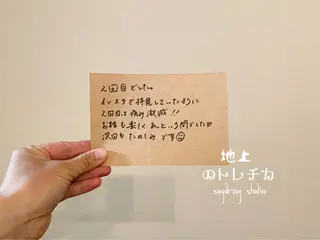 2回目でした。
インスタで拝見していたように
2回目は痛み激減!!
お話も楽しくあっという間でした
次回もたのしみです
地上
のトレチカ